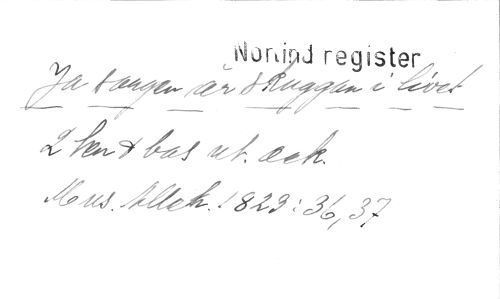 Norlind register
Ja sangen är skuggan i livet
2 ten & bas ut. ack.
Mus. Alleh. 1823: 36, 37